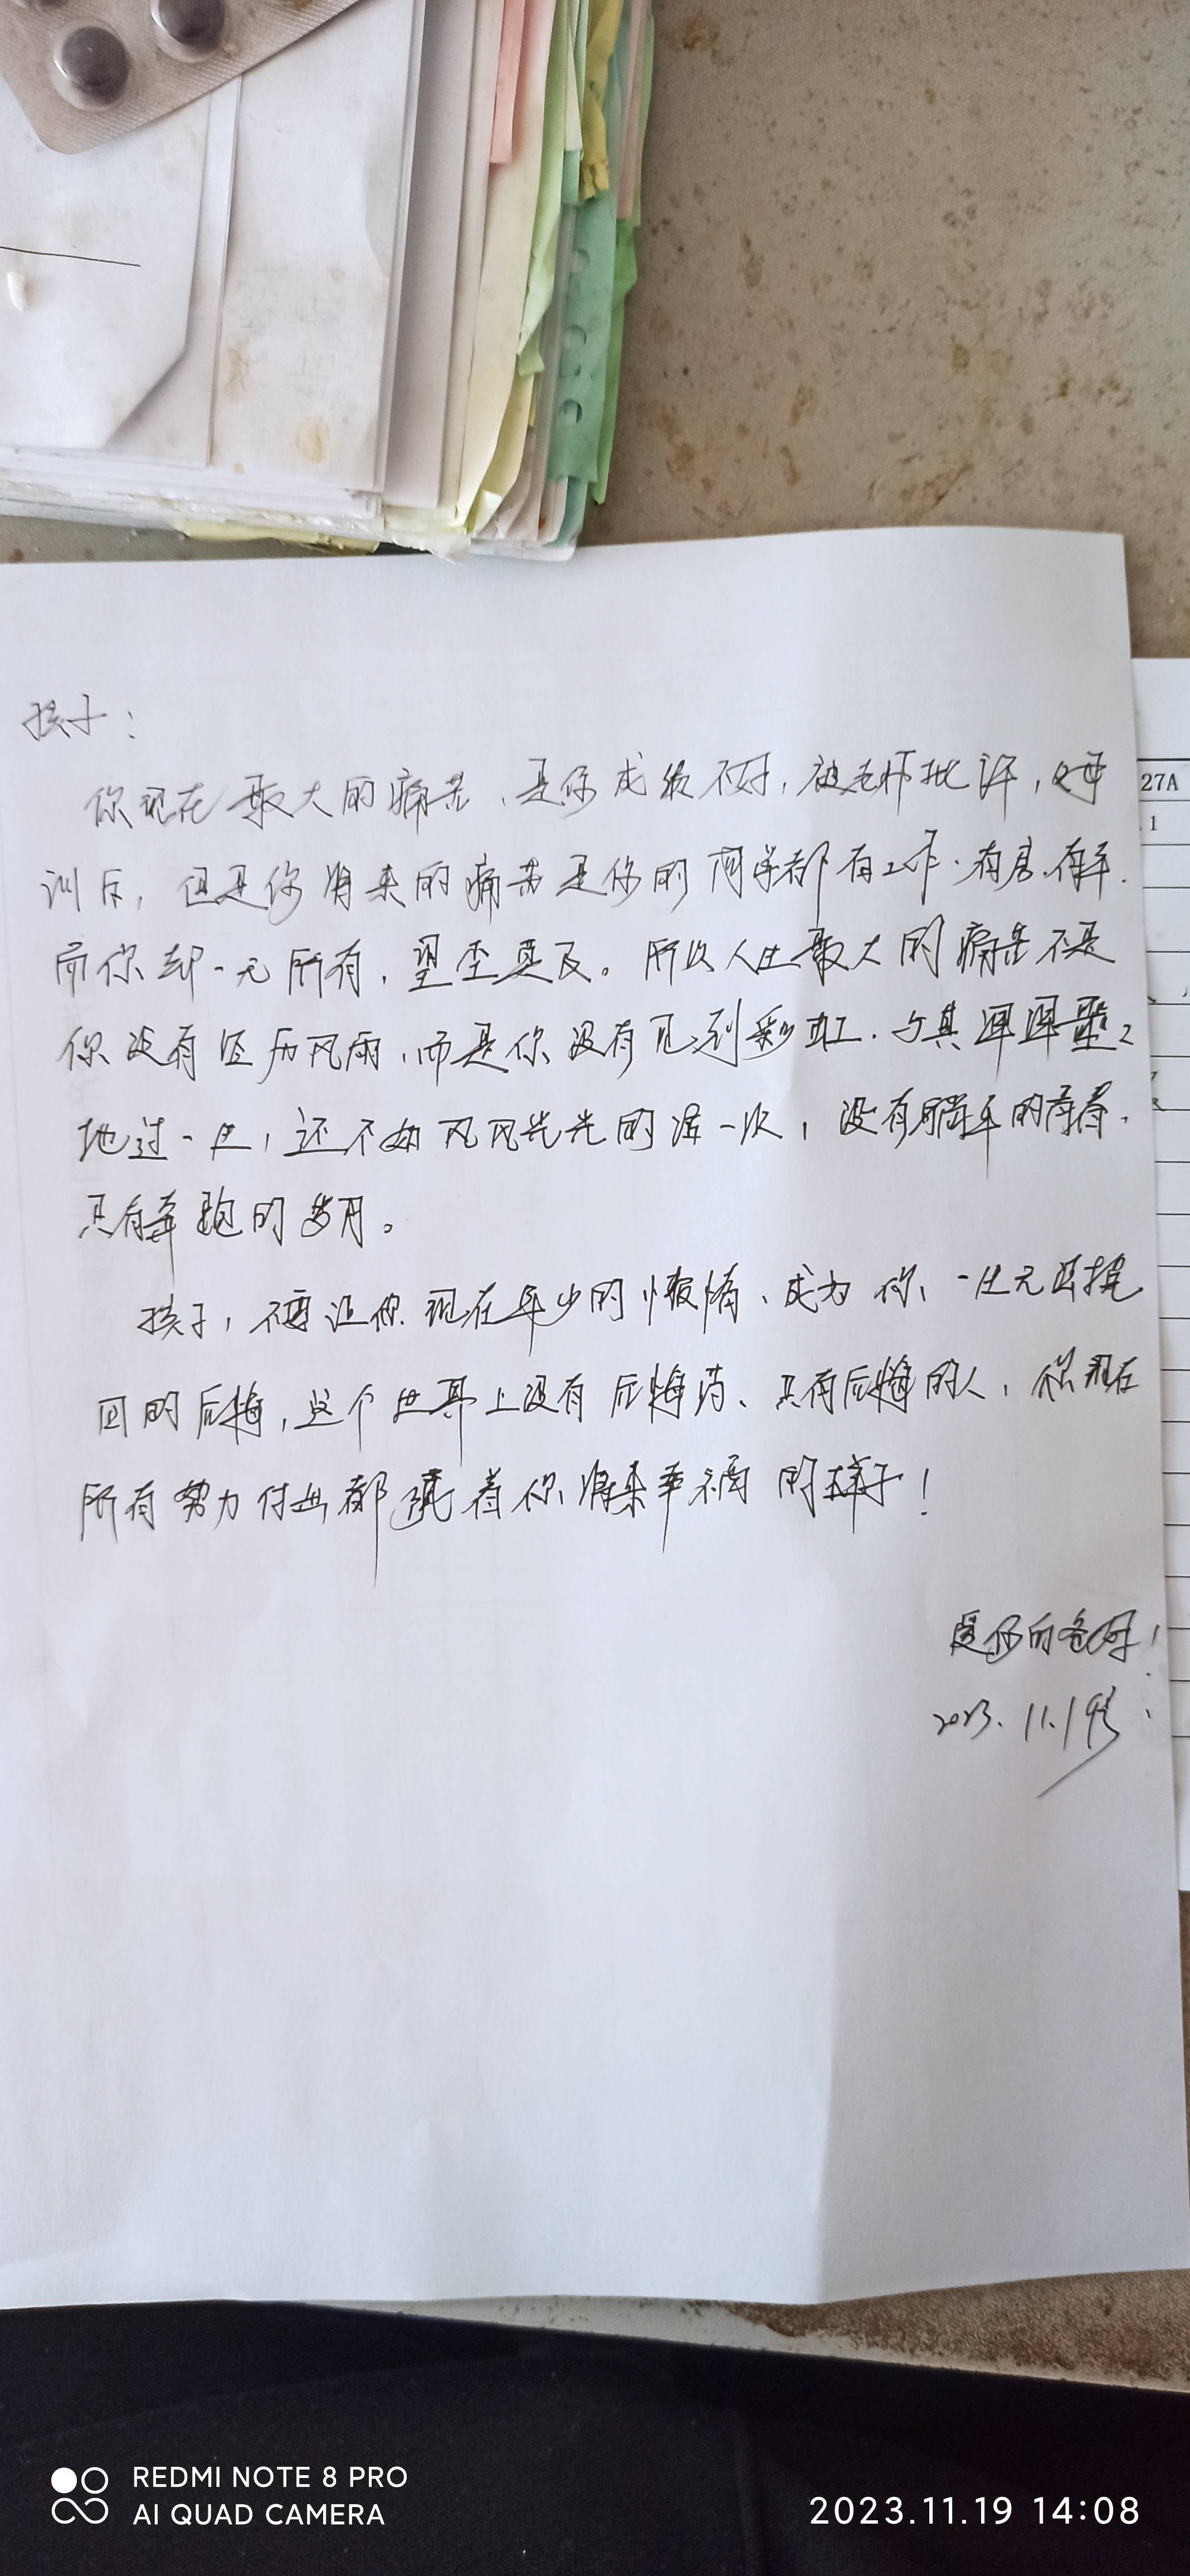 27A
1
孩子:
你现在最大的痛苦,是你成绩不好,被老师批评,父母
训斥,但是你将来的痛苦是你的同学都有工作.有房.有车.
而你却一无所有,望尘莫及。所以人生最大的痛苦不是
你没有经历风雨,而是你没有见到彩虹.与其浑浑噩噩
地过一生,还不如风风光光的活一次,没有躺平的青春,
只有奔跑的岁月。
孩子,不要让你现在年少的懒惰、成为你、一生无法挽
回的后悔,这个世界上没有后悔药、只有后悔的人,你现在
所有努力付出都藏着你将来幸福的样子!
爱你的爸妈!
2023.11.19
REDMI NOTE 8 PRO
AI QUAD CAMERA
2023.11.19 14:08